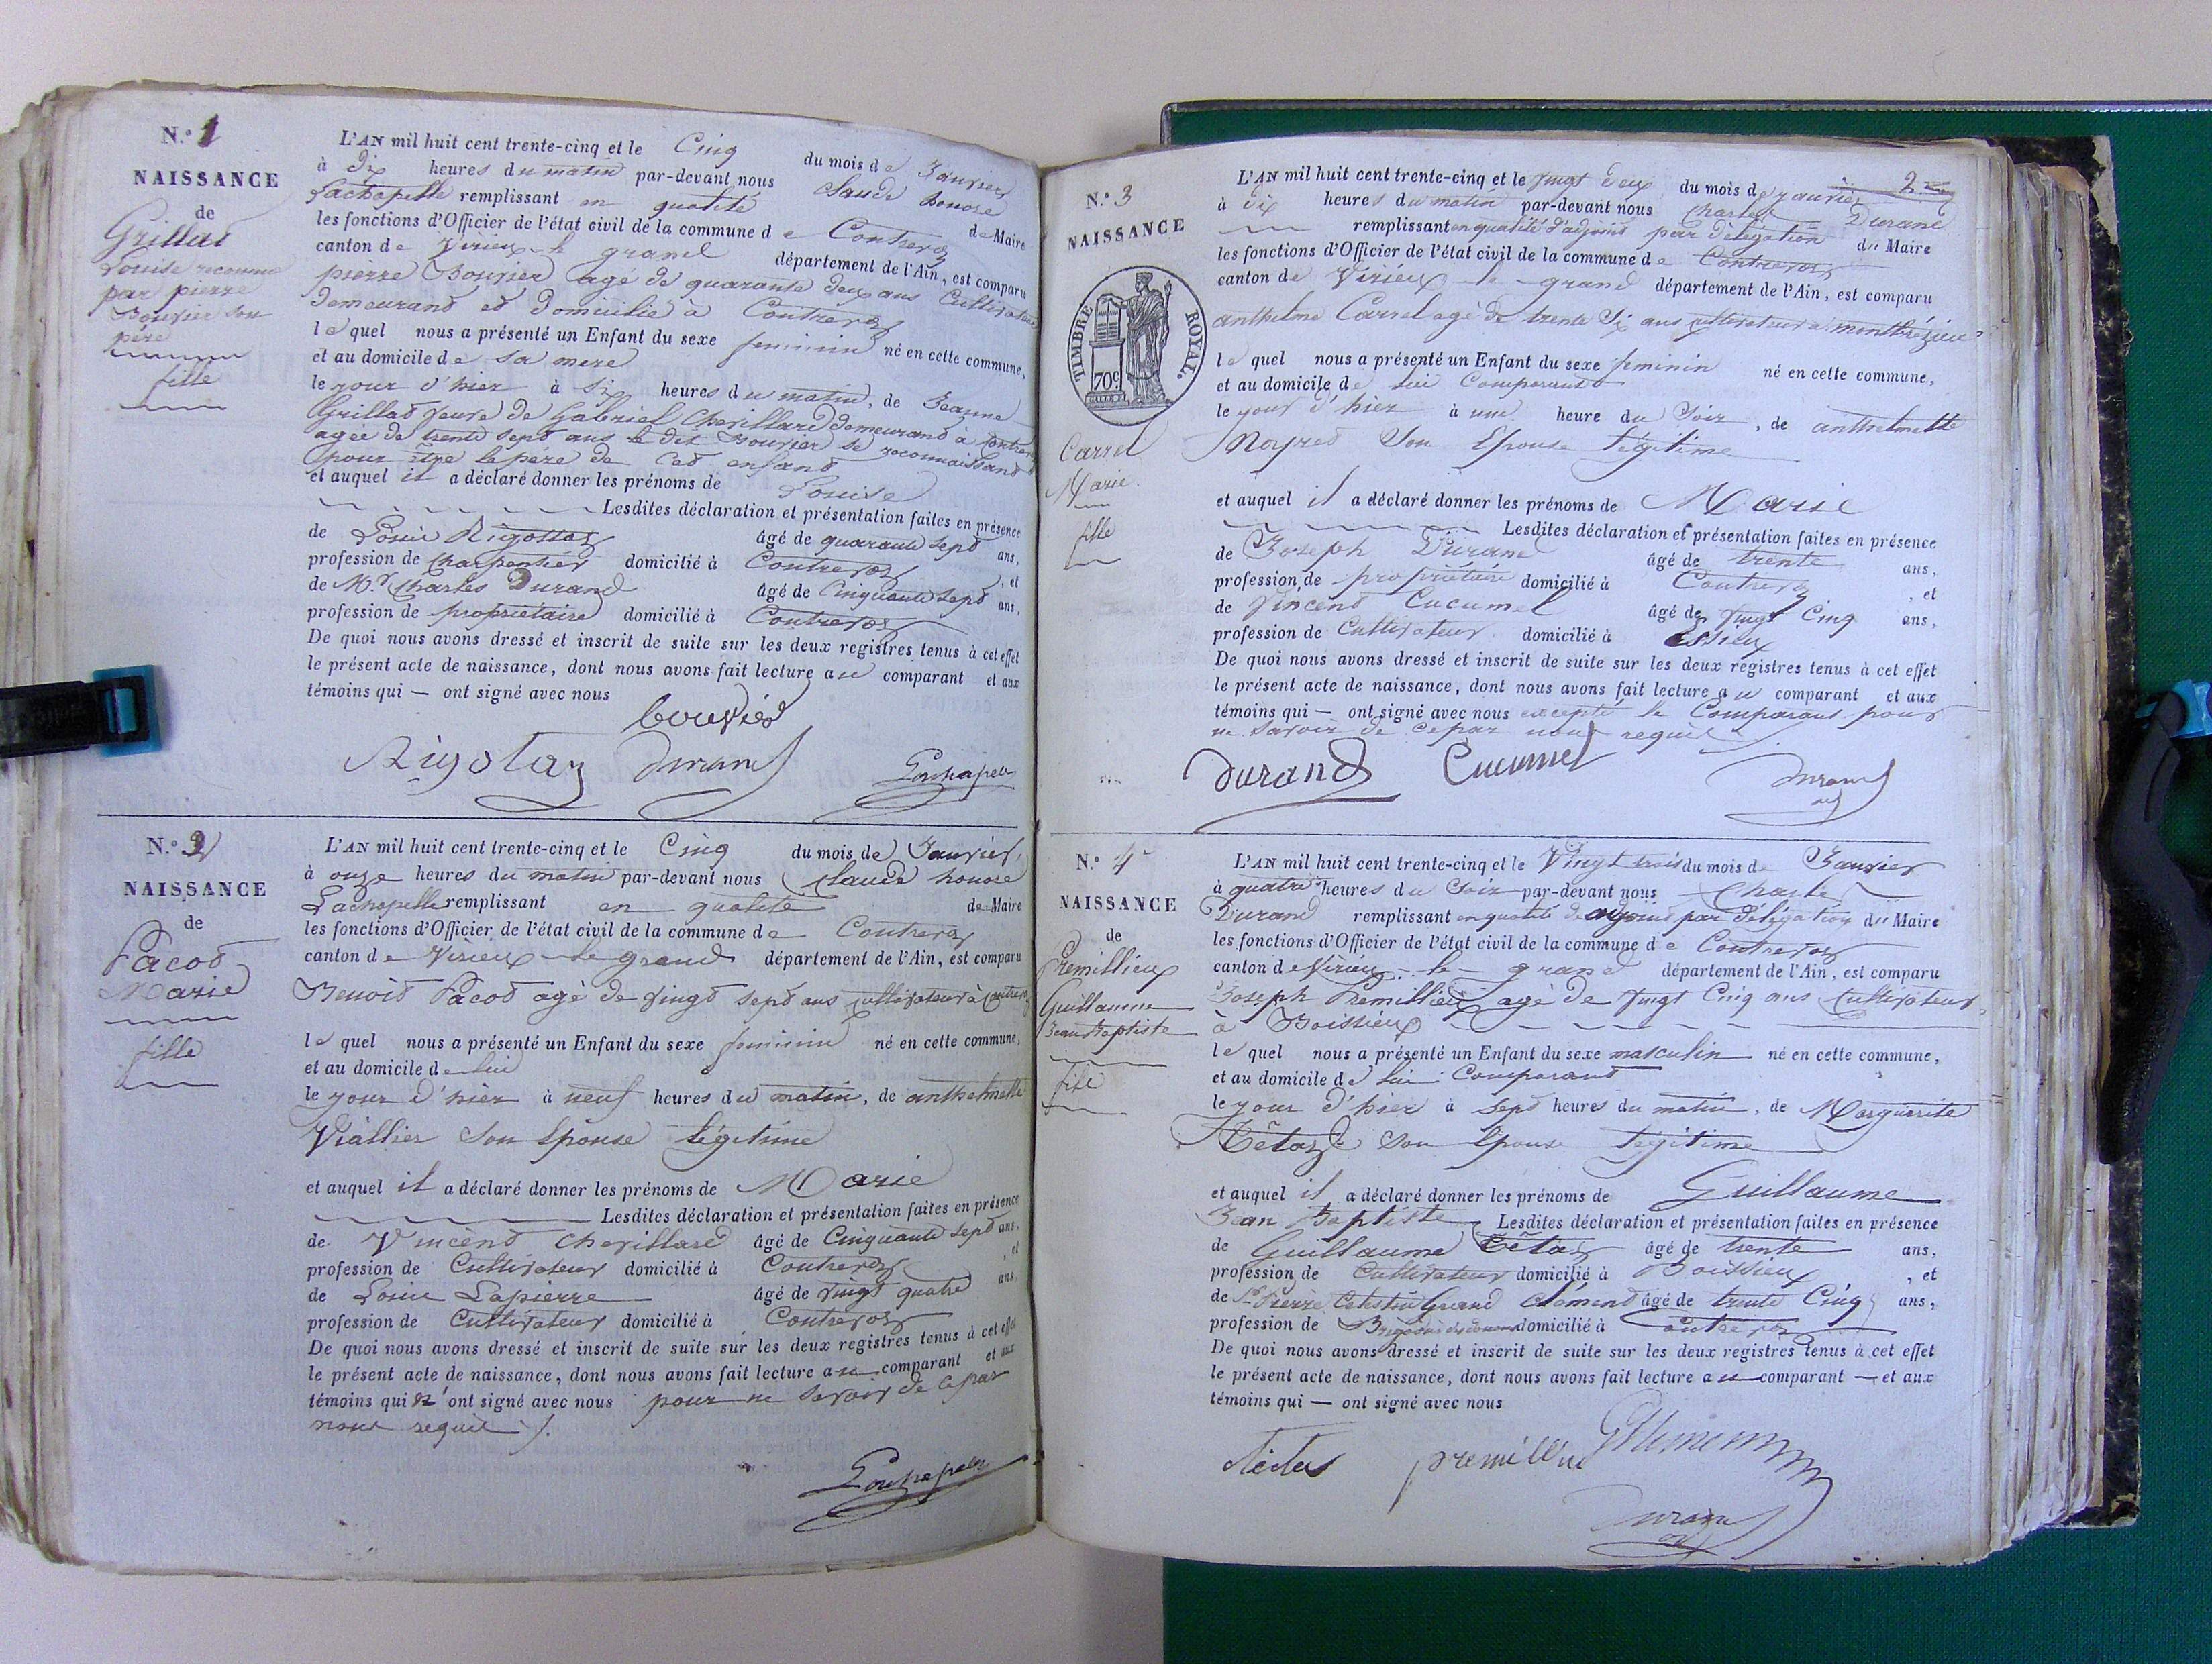 N.º 1
NAISSANCE
de
Grillat
Louise reconnue
par pierre
Bouvier son
père
fille
L'AN mil huit cent trente-cinq et le Cinq du mois de Janvier
à dix heures du matin par-devant nous Claude honoré
Lachapelle remplissant en qualité de Maire
les fonctions d'Officier de l'état civil de la commune de Contrevoz
canton de Virieu-le-grand département de l'Ain, est comparu
pierre Bouvier agé de quarante deux ans Cultivateur
demeurant et domicilié à Contrevoz
lequel nous a présenté un Enfant du sexe feminin né en cette commune,
et au domicile de sa mere
le jour d'hier à six heures du matin, de Jeanne
Grillat veuve de Gabriel Chevillard demeurant à Contrevoz
agée de trente sept ans le dit Bouvier se reconnaissant
pour être le pere de cet enfant
et auquel il a déclaré donner les prénoms de Louise
Lesdites déclaration et présentation faites en présence
de Louis Rigottaz âgé de quarante sept ans,
profession de Charpentier domicilié à Contrevoz, et
de Mr. Charles Durand âgé de Cinquante sept ans,
profession de propriétaire domicilié à Contrevoz
De quoi nous avons dressé et inscrit de suite sur les deux registres tenus à cet effet
le présent acte de naissance, dont nous avons fait lecture au comparant et aux
témoins qui — ont signé avec nous
bouvier
Rigotaz Durand Lachapelle
N.º 2
NAISSANCE
de
Pacot
Marie
fille
L'AN mil huit cent trente-cinq et le Cinq du mois de Janvier,
à onze heures du matin par-devant nous Claude honoré
Lachapelle remplissant en qualité de Maire
les fonctions d'Officier de l'état civil de la commune de Contrevoz
canton de Virieu-le-grand département de l'Ain, est comparu
Benoit Pacot agé de vingt sept ans cultivateur à Contrevoz
lequel nous a présenté un Enfant du sexe feminin né en cette commune,
et au domicile de lui
le jour d'hier à neuf heures du matin, de anthelmette
Viallier son Epouse légitime
et auquel il a déclaré donner les prénoms de Marie
Lesdites déclaration et présentation faites en présence
de Vincent Chevillard âgé de Cinquante sept ans,
profession de Cultivateur domicilié à Contrevoz, et
de Louis Lapierre âgé de vingt quatre ans,
profession de Cultivateur domicilié à Contrevoz
De quoi nous avons dressé et inscrit de suite sur les deux registres tenus à cet effet
le présent acte de naissance, dont nous avons fait lecture au comparant et aux
témoins qui n'ont signé avec nous pour ne savoir de ce par
nous requis /.
Lachapelle
2
N.º 3
NAISSANCE
TIMBRE ROYAL.
70c
Carrel
Marie.
fille
L'AN mil huit cent trente-cinq et le vingt deux du mois de janvier
à dix heures du matin par-devant nous Charles Durand
remplissant en qualité d'adjoint par délégation du Maire
les fonctions d'Officier de l'état civil de la commune de Contrevoz
canton de Virieu-le-grand département de l'Ain, est comparu
anthelme Carrel agé de trente six ans cultivateur a montbrézieu
lequel nous a présenté un Enfant du sexe feminin né en cette commune,
et au domicile de lui Comparant
le jour d'hier à une heure du Soir, de anthelmette
Moyret Son Epouse légitime
et auquel il a déclaré donner les prénoms de Marie
Lesdites déclaration et présentation faites en présence
de Joseph Durand âgé de trente ans,
profession de propriétaire domicilié à Contrevoz, et
de Vincent Cucumel âgé de vingt Cinq ans,
profession de Cultivateur domicilié à essieux
De quoi nous avons dressé et inscrit de suite sur les deux registres tenus à cet effet
le présent acte de naissance, dont nous avons fait lecture au comparant et aux
témoins qui — ont signé avec nous excepté le Comparant pour
ne savoir de ce par nous requis
Durand Cucumel Durand
adj
N.º 4
NAISSANCE
de
Premillieu
Guillaume
Jean Baptiste
fils
L'AN mil huit cent trente-cinq et le Vingt trois du mois de Janvier
à quatre heures du Soir par-devant nous Charles
Durand remplissant en qualité de adjoint par délégation du Maire
les fonctions d'Officier de l'état civil de la commune de Contrevoz
canton de Virieu-le-grand département de l'Ain, est comparu
Joseph Premillieu agé de vingt Cinq ans Cultivateur
à Boissieu
lequel nous a présenté un Enfant du sexe masculin né en cette commune,
et au domicile de lui Comparant
le jour d'hier à sept heures du matin, de Marguerite
Têtaz son Epouse légitime
et auquel il a déclaré donner les prénoms de Guillaume
Jean Baptiste Lesdites déclaration et présentation faites en présence
de Guillaume Têtaz âgé de trente ans,
profession de Cultivateur domicilié à Boissieu, et
de Sr Pierre Celestin Grand Clément âgé de trente Cinq ans,
profession de Brigadier des douanes domicilié à Contrevoz
De quoi nous avons dressé et inscrit de suite sur les deux registres tenus à cet effet
le présent acte de naissance, dont nous avons fait lecture au comparant — et aux
témoins qui — ont signé avec nous
premillieu
Durand
adj